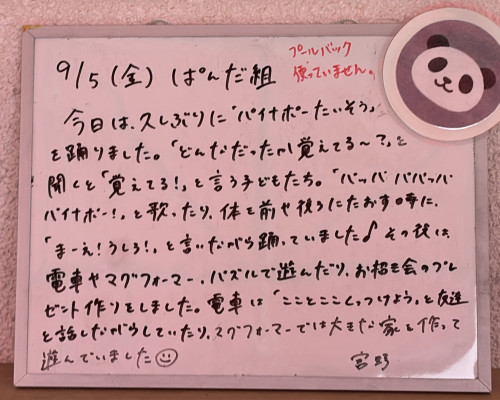 9/5(金) ぱんだ組
プールバック
使っていません。
今日は、久しぶりに「パイナポーたいそう」
を踊りました。「どんなだったか覚えてる〜?」と
聞くと「覚えてる!」と言う子どもたち。「パッパ パパッパ
パイナポー!」と歌ったり、体を前や後ろにたおす時に、
「まーえ!うしろ!」と言いながら踊っていました♪ その後は
電車やマグフォーマー、パズルで遊んだり、お招き会のプレ
ゼント作りをしました。電車は「こことここくっつけよう」と友達
と話しながらしていたり、マグフォーマーでは大きな家を作って
遊んでいました☺
宮野